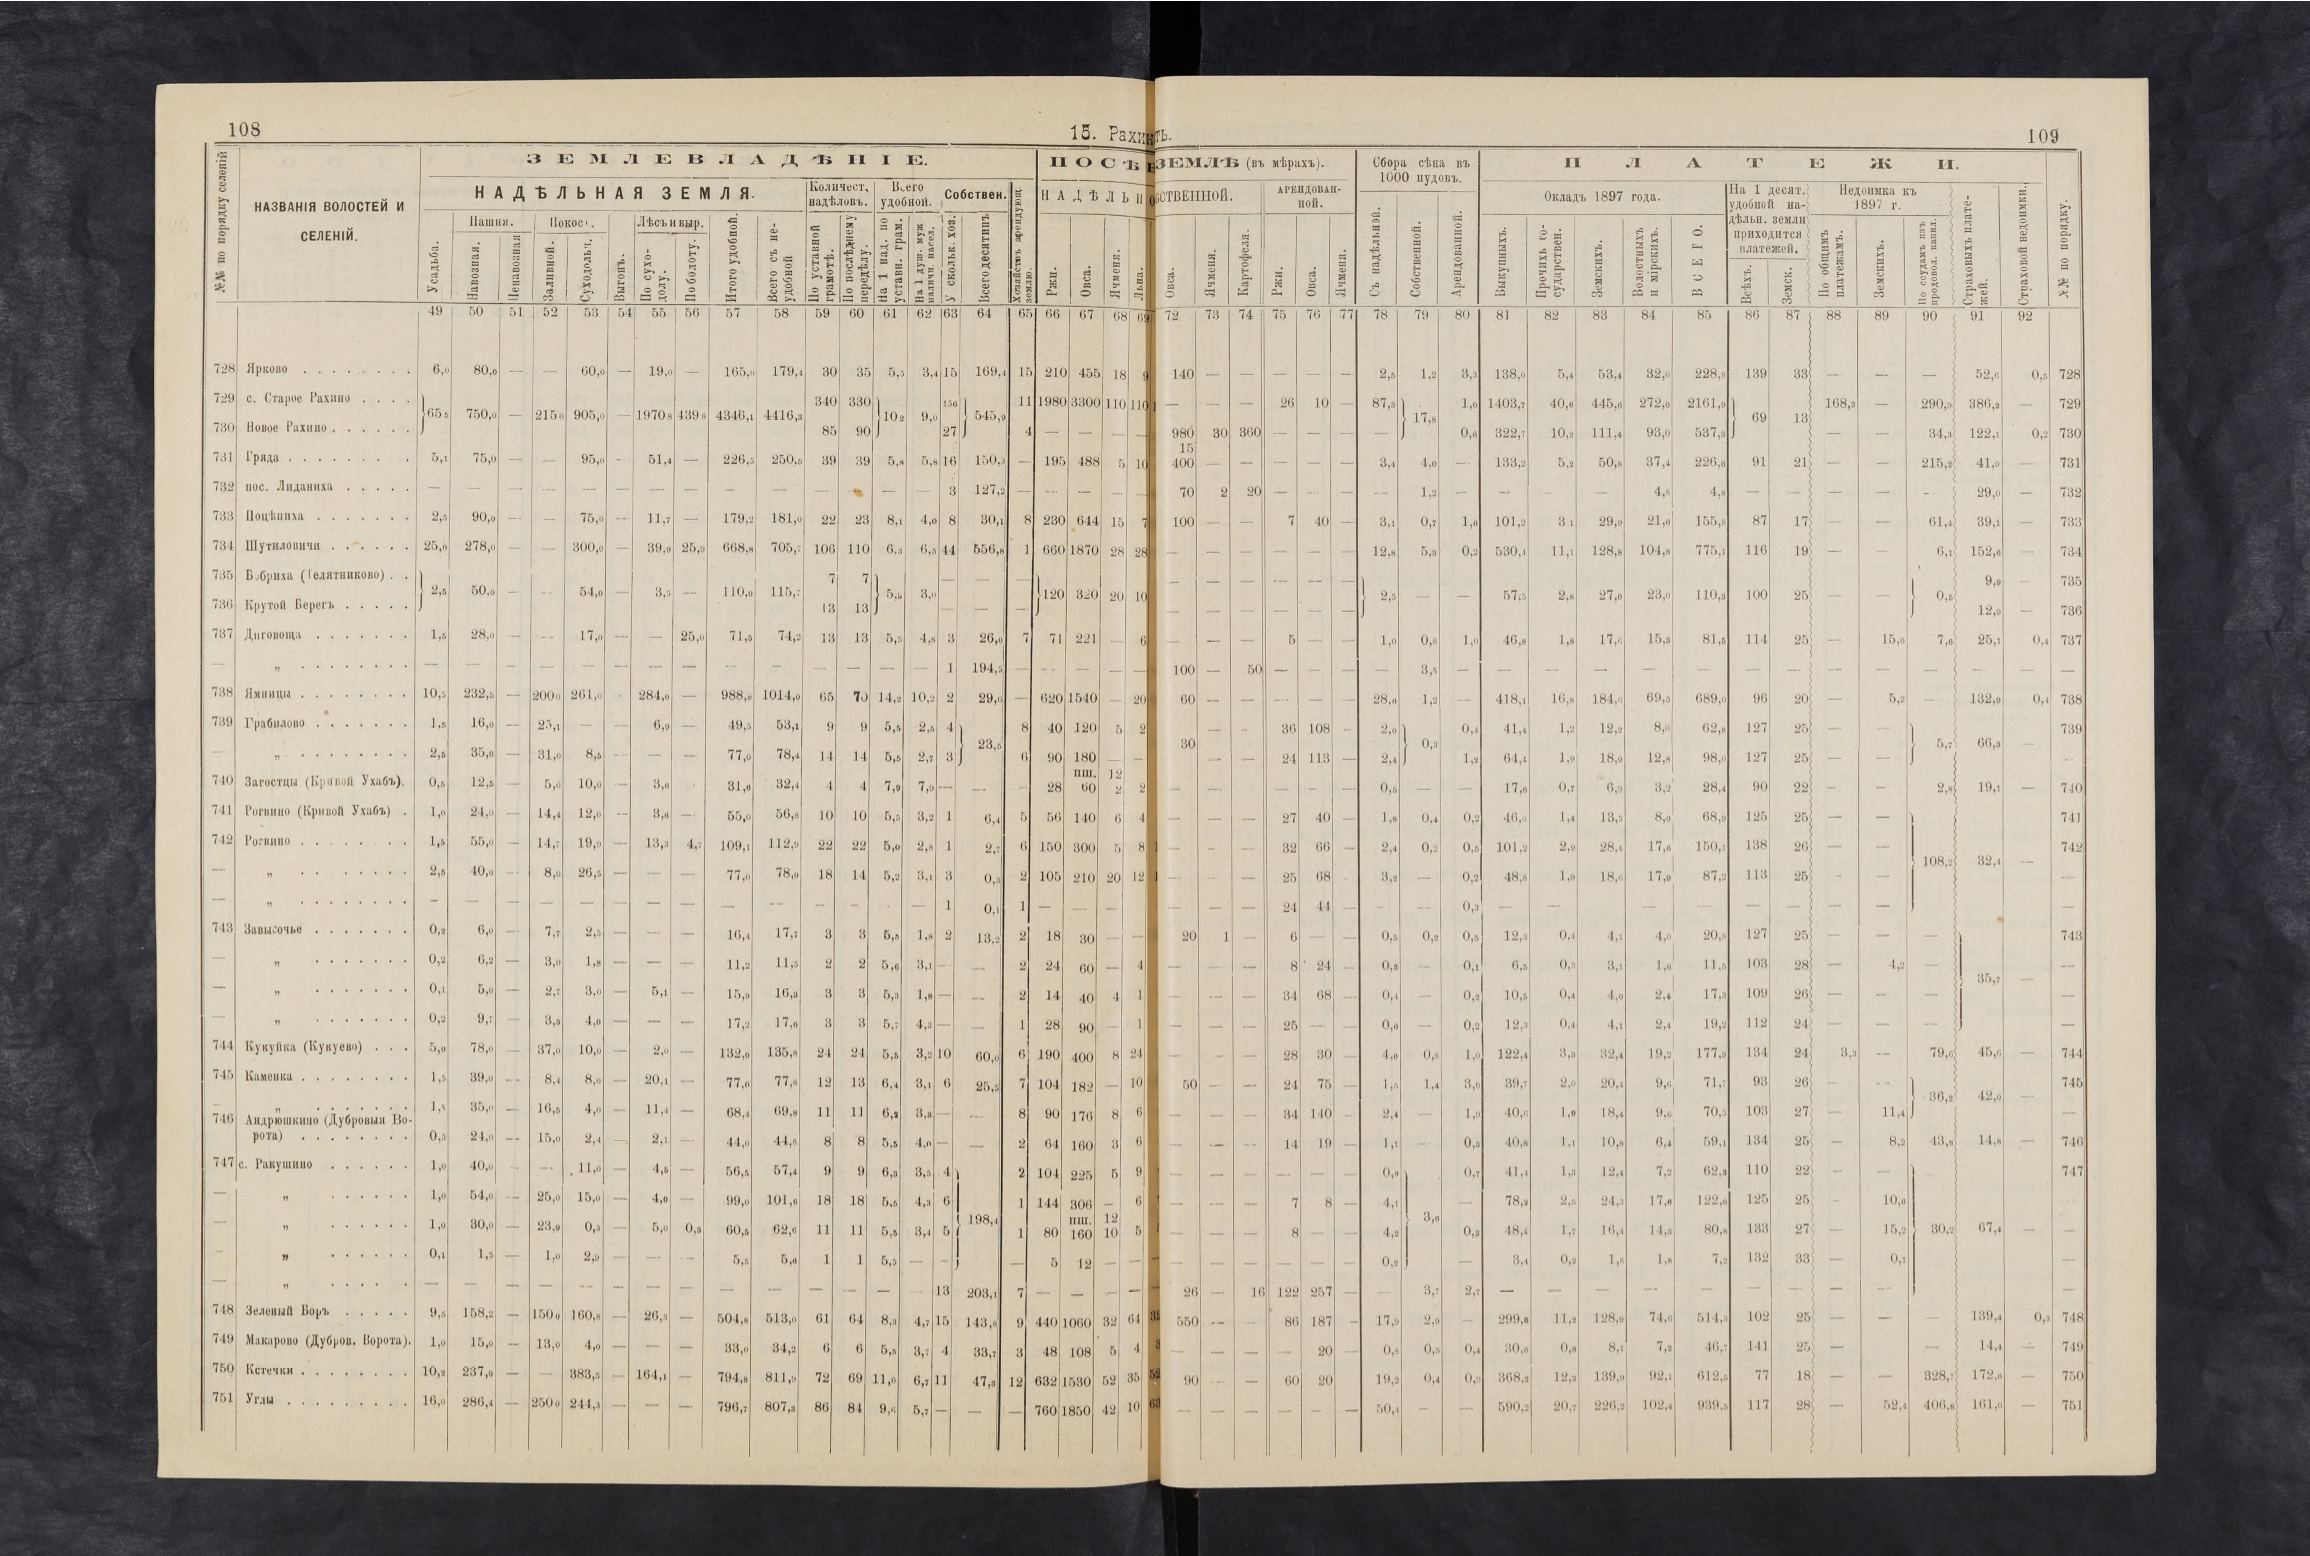 108
15. Рахинть.
109
ЗЕМЛЕВЛАДѢНІЕ.
ПОСѢ
ЗЕМЛѢ (въ мѣрахъ).
Сбора сѣна въ 1000 пудовъ.
ПЛАТЕЖИ.
№№ по порядку селеній
НАЗВАНІЯ ВОЛОСТЕЙ И СЕЛЕНІЙ.
НАДѢЛЬНАЯ ЗЕМЛЯ.
Количест. надѣловъ.
Всего удобной.
Собствен.
Хозяйствъ арендующ. землю.
НАДѢЛЬН
СТВЕННОЙ.
АРЕНДОВАН-НОЙ.
Окладъ 1897 года.
На 1 десят. удобной на-дѣльн. земли приходится платежей.
Недоимка къ 1897 г.
Страховыхъ плате-жей.
Страховой недоимки.
№№ по порядку.
Усадьба.
Пашня.
Покосъ.
Лѣсъ и выр.
Навозная.
Ненавозная
Заливной.
Суходольн.
Выгонъ.
По сухо-долу.
По болоту.
Итого удобной.
Всего съ не-удобной
По уставной грамотѣ.
По послѣднему передѣлу.
На 1 над. по уставн. грам.
На 1 душ. муж наличн. насел.
У скольк. хоз.
Всего десятинъ
Ржи.
Овса.
Ячменя.
Льна.
Овса.
Ячменя.
Картофеля.
Ржи.
Овса.
Ячменя.
Съ надѣльной.
Собственной.
Арендованной.
Выкупныхъ.
Прочихъ го-сударствен.
Земскихъ.
Волостныхъ и мірскихъ.
ВСЕГО.
Всѣхъ.
Земск.
По общимъ платежамъ.
Земскихъ.
По ссудамъ изъ продовол. капил.
49 50 51 52 53 54 55 56 57 58 59 60 61 62 63 64 65 66 67 68 69 72 73 74 75 76 77 78 79 80 81 82 83 84 85 86 87 88 89 90 91 92
728 Ярково 6,0 80,0 — — 60,0 — 19,0 — 165,0 179,4 30 35 5,5 3,4 15 169,4 15 210 455 18 9 140 — — — — — 2,5 1,2 3,3 138,0 5,4 53,4 32,0 228,8 139 33 — — — 52,6 0,5 728
729 с. Старое Рахино 65 5 750,0 — 215 0 905,0 — 1970 8 439 8 4346,1 4416,3 340 330 10 2 9,0 156 545,9 11 1980 3300 110 110 — — — 26 10 — 87,3 17,8 1,0 1403,7 40,6 445,6 272,0 2161,9 69 13 168,3 — 290,9 386,2 — 729
730 Новое Рахино 85 90 27 4 — — — — 980 30 360 — — — — 0,6 322,7 10,2 111,4 93,0 537,3 — — 34,3 122,1 0,2 730
731 Гряда 5,1 75,0 — — 95,0 - 51,4 — 226,5 250,5 39 39 5,8 5,8 16 150,3 — 195 488 5 10 15 400 — — — — — 3,4 4,0 — 133,2 5,2 50,8 37,4 226,6 91 21 — — 215,2 41,0 — 731
732 пос. Лиданиха — — — — — — — — — — — — — — 3 127,2 — — — — — 70 2 20 — — — — 1,2 — — — — 4,8 4,8 — — — — - 29,0 — 732
733 Поцѣпиха 2,5 90,0 — — 75,0 — 11,7 — 179,2 181,0 22 23 8,1 4,0 8 30,1 8 230 644 15 7 100 — — 7 40 — 3,1 0,7 1,6 101,2 3 1 29,9 21,6 155,8 87 17 — — 61,4 39,1 — 733
734 Шутиловичи 25,0 278,0 — — 300,0 — 39,9 25,9 668,8 705,7 106 110 6,3 6,5 44 556,8 1 660 1870 28 28 — — — — — — 12,8 5,3 0,2 530,4 11,1 128,8 104,8 775,1 116 19 — — 6,1 152,6 — 734
735 Бобриха (Телятниково) 7 7 — — — — — — — — — 9,9 — 735
2,5 50,0 — — 54,0 — 3,5 — 110,0 115,7 5,5 3,0 120 320 20 10 2,5 — — 57,5 2,8 27,0 23,0 110,3 100 25 — — 0,5
736 Крутой Берегъ 13 13 — — — — — — — — — 12,9 — 736
737 Диговоща 1,5 28,0 — — 17,0 — — 25,0 71,5 74,2 13 13 5,5 4,8 3 26,0 7 71 221 — 6 — — — 5 — — 1,0 0,8 1,0 46,8 1,8 17,6 15,3 81,5 114 25 — 15,0 7,6 25,1 0,4 737
— „ — — — — — — — — — — — — — — 1 194,5 — — — — — 100 — 50 — — — — 3,5 — — — — — — — — — — — — — —
738 Ямницы 10,5 232,5 — 200 0 261,0 - 284,0 — 988,0 1014,0 65 70 14,2 10,2 2 29,6 — 620 1540 — 20 60 — — — — — 28,6 1,2 — 418,1 16,8 184,6 69,5 689,0 96 20 — 5,2 — 132,9 0,4 738
739 Грабилово 1,5 16,0 — 25,1 — — 6,9 — 49,5 53,1 9 9 5,5 2,5 4 23,5 8 40 120 5 2 30 — - 36 108 - 2,0 0,3 0,4 41,4 1,2 12,2 8,0 62,8 127 25 — — 5,7 66,3 — 739
— „ 2,5 35,0 — 31,0 8,5 — — — 77,0 78,4 14 14 5,5 2,7 3 6 90 180 — — — — 24 113 — 2,4 1,2 64,4 1,9 18,9 12,8 98,0 127 25 — —
740 Загостцы (Кривой Ухабъ). 0,5 12,5 — 5,0 10,0 — 3,6 - 31,6 32,4 4 4 7,9 7,9 — — — 28 пш. 60 12 2 2 — — — — — — 0,5 — — 17,6 0,7 6,9 3,2 28,4 90 22 — — 2,8 19,1 — 740
741 Рогвино (Кривой Ухабъ) 1,0 24,0 — 14,4 12,0 — 3,6 — 55,0 56,8 10 10 5,5 3,2 1 6,4 5 56 140 6 4 — — — 27 40 — 1,8 0,4 0,2 46,0 1,4 13,5 8,0 68,9 125 25 — — 741
742 Рогвино 1,5 55,0 — 14,7 19,9 — 13,3 4,7 109,1 112,9 22 22 5,0 2,8 1 2,7 6 150 300 5 8 — - — 32 66 — 2,4 0,2 0,5 101,2 2,9 28,4 17,6 150,1 138 26 — — 108,2 32,4 — 742
— „ 2,5 40,0 - 8,0 26,5 — — — 77,0 78,0 18 14 5,2 3,1 3 0,3 2 105 210 20 12 — — — 25 68 — 3,2 — 0,2 48,8 1,9 18,6 17,9 87,2 113 25 - — —
— „ — — — — — — — — — — — — — — 1 0,1 1 — — — — — — — 24 44 — — - 0,3 — — — — — — — — — —
743 Завысочье 0,2 6,0 — 7,7 2,5 — — — 16,4 17,7 3 3 5,5 1,8 2 13,2 2 18 30 — — 20 1 — 6 — — 0,5 0,2 0,5 12,3 0,4 4,1 4,0 20,8 127 25 — — — 743
— „ 0,2 6,2 — 3,0 1,8 — — — 11,2 11,5 2 2 5,6 3,1 — — 2 24 60 — 4 — — — 8 24 — 0,3 — 0,1 6,5 0,3 3,1 1,6 11,5 103 28 — 4,2 — 35,7 — —
— „ 0,1 5,0 — 2,7 3,0 — 5,1 — 15,9 16,3 3 3 5,3 1,8 — — 2 14 40 4 1 — — — 34 68 — 0,4 — 0,2 10,5 0,4 4,0 2,4 17,3 109 26 — — — —
— „ 0,2 9,7 — 3,3 4,0 — — — 17,2 17,6 3 3 5,7 4,3 — — 1 28 90 — 1 — — — 25 — — 0,6 — 0,2 12,3 0,4 4,1 2,4 19,2 112 24 — — — —
744 Кукуйка (Кукуево) 5,0 78,0 — 37,0 10,0 — 2,0 — 132,0 135,8 24 24 5,5 3,2 10 60,0 6 190 400 8 24 — — — 28 30 — 4,6 0,8 1,0 122,4 3,3 32,4 19,2 177,3 134 24 3,3 — 79,6 45,6 — 744
745 Каменка 1,5 39,0 — 8,4 8,0 — 20,1 — 77,0 77,8 12 13 6,4 3,1 6 25,5 7 104 182 — 10 50 — — 24 75 — 1,5 1,4 3,0 39,7 2,0 20,4 9,6 71,7 93 26 — — 36,2 42,0 — 745
— „ 1,5 35,0 — 16,5 4,0 — 11,4 — 68,4 69,8 11 11 6,2 3,3 — — 8 90 176 8 6 — — — 34 140 — 2,4 — 1,9 40,6 1,9 18,4 9,6 70,5 103 27 — 11,4 —
746 Андрюшкино (Дубровыя Во-
рота) 0,5 24,0 — 15,0 2,4 — 2,1 — 44,0 44,8 8 8 5,5 4,0 — — 2 64 160 3 6 — — — 14 19 — 1,1 — 0,3 40,8 1,1 10,8 6,4 59,1 134 25 — 8,2 43,8 14,8 — 746
747 с. Ракушино 1,0 40,0 - — 11,0 — 4,5 — 56,5 57,4 9 9 6,3 3,5 4 2 104 225 5 9 — — — — — — 0,9 0,7 41,4 1,3 12,4 7,2 62,3 110 22 — — 747
— „ 1,0 54,0 — 25,0 15,0 — 4,0 — 99,0 101,6 18 18 5,5 4,3 6 198,4 1 144 306 — 6 — — — 7 8 — 4,1 3,6 — 78,2 2,5 24,3 17,6 122,6 125 25 - 10,6
— „ 1,0 30,0 — 23,9 0,3 — 5,0 0,3 60,5 62,6 11 11 5,5 3,4 5 1 80 пш. 160 12 10 5 — — — 8 — — 4,2 0,3 48,4 1,7 16,4 14,3 80,8 133 27 — 15,2 30,2 67,4 — —
— „ 0,1 1,5 — 1,0 2,9 — — — 5,5 5,6 1 1 5,5 — - — 5 12 — — — — — — — — 0,2 — 3,4 0,2 1,8 1,8 7,2 132 33 — 0,1 —
— „ — — — — — — — — — — — — — — 13 203,1 7 — — — — 26 — 16 122 257 — — 3,7 2,7 — — — — — — — — — —
748 Зеленый Боръ 9,5 158,2 — 150 0 160,8 — 26,3 — 504,8 513,0 61 64 8,3 4,7 15 143,8 9 440 1060 32 64 550 — — 86 187 — 17,9 2,9 — 299,6 11,2 128,9 74,6 514,3 102 25 — — — 139,4 0,3 748
749 Макарово (Дубров. Ворота). 1,0 15,0 — 13,0 4,0 — — — 33,0 34,2 6 6 5,5 3,7 4 33,7 3 48 108 5 4 — — — 20 — 0,8 0,5 0,4 30,6 0,8 8,1 7,2 46,7 141 25 — — 14,4 — 749
750 Кстечки 10,2 237,0 — — 383,5 — 164,1 — 794,8 811,9 72 69 11,0 6,7 11 47,3 12 632 1530 52 35 52 90 — — 60 20 19,2 0,4 0,9 368,2 12,3 139,9 92,1 612,5 77 18 — — 328,7 172,6 — 750
751 Углы 16,0 286,4 — 250 0 244,3 — — — 796,7 807,3 86 84 9,6 5,7 — — — 760 1850 42 10 63 — — — — — — 50,4 — — 590,2 20,7 226,2 102,4 939,5 117 28 — 52,4 406,8 161,0 — 751